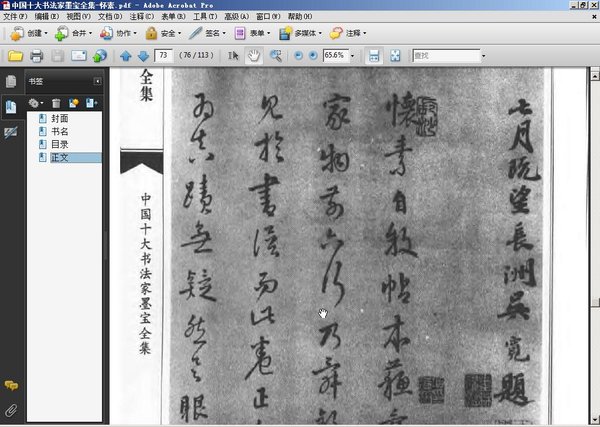 中国十大书法家墨宝全集-怀素.pdf - Adobe Acrobat Pro
文件(F) 编辑(E) 视图(V) 文档(D) 注释(C) 表单(R) 工具(T) 高级(A) 窗口(W) 帮助(H)
创建 合并 协作 安全 签名 表单 多媒体 注释
73 (76 / 113) 65.6% 查找
书签
封面
书名
目录
正文
全集
中国十大书法家墨宝全集
七月既望長洲吳寬題
懷素自叙帖本蘇
家物前六行乃舜
見於書譜而此卷正
為真蹟無疑然具眼